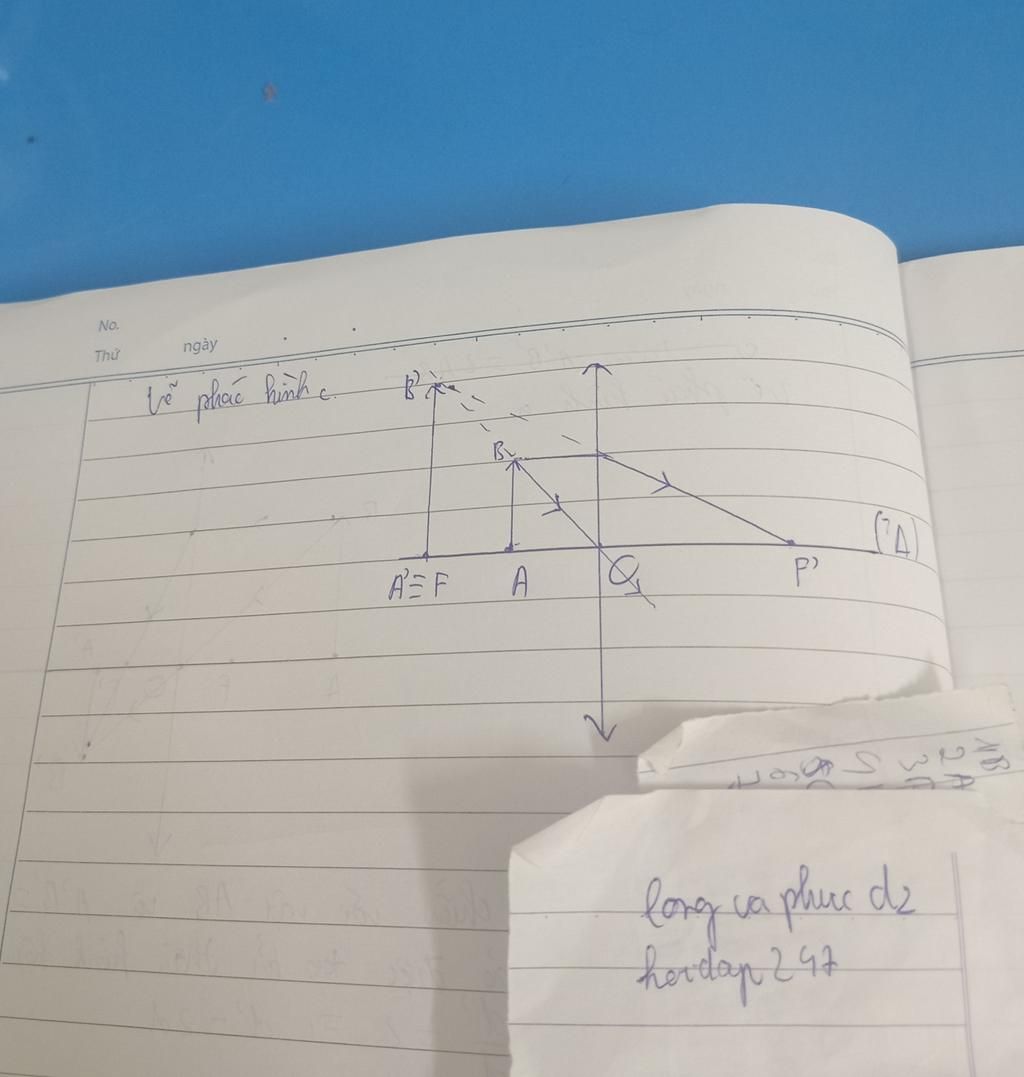 No.
Thứ ngày
Vẽ phác hình c.
B'
B
(Δ)
A'≡F A O F'
long va phuc d2
hoidap247